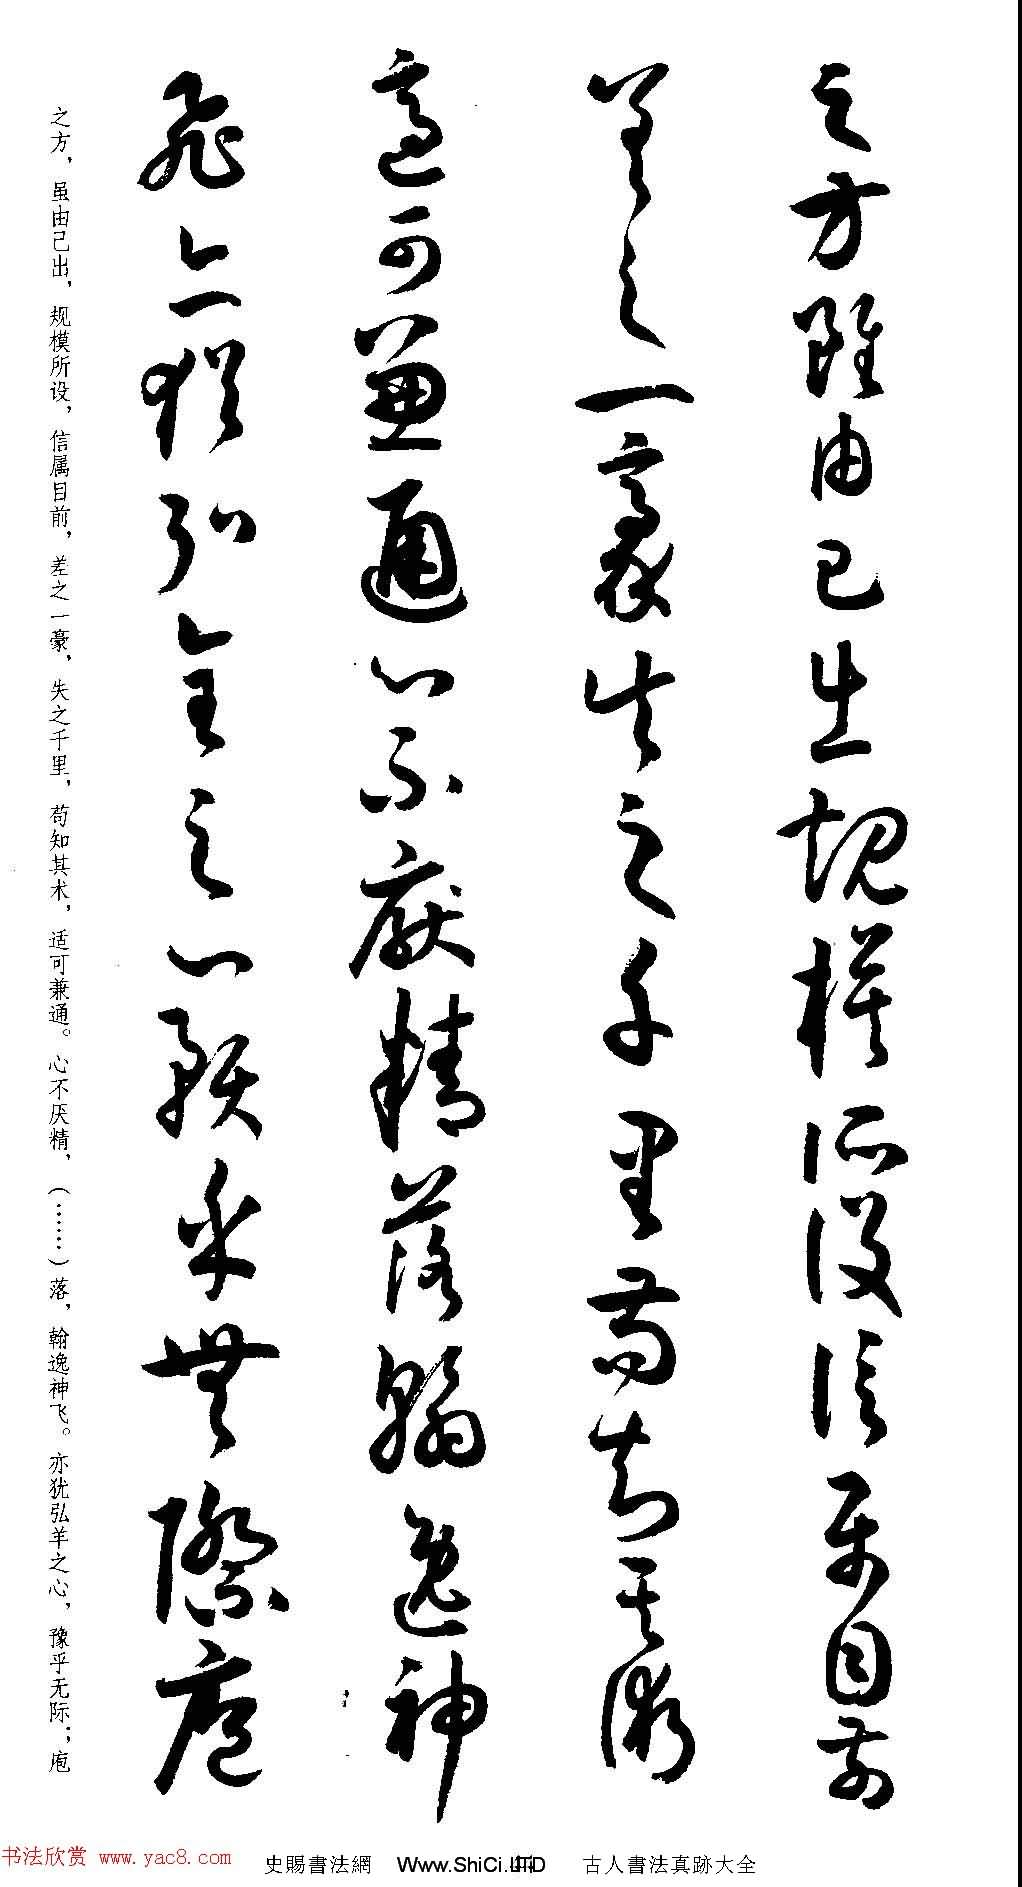 之方雖由己出規模所設信屬目前
差之一豪失之千里苟知其術
適可兼通心不厭精落翰逸神
飛亦猶弘羊之心豫乎無際庖
之方，虽由己出，规模所设，信属目前，差之一豪，失之千里，苟知其术，适可兼通。心不厌精，（……）落，翰逸神飞。亦犹弘羊之心，豫乎无际；庖
书法欣赏 www.yac8.com
史賜書法網 Www.ShiCi.LTD 古人書法真跡大全